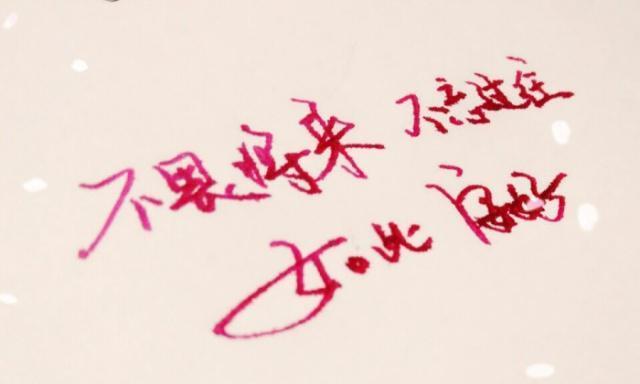 不畏将来 不念过往
如此 安好